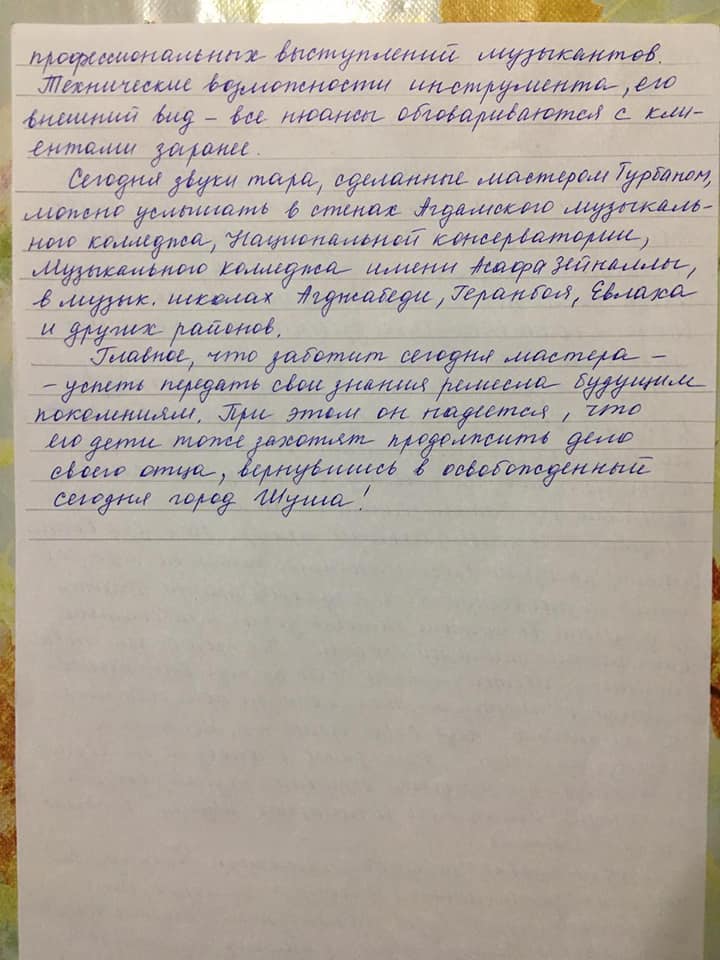 профессиональных выступлений музыкантов.
Технические возможности инструмента, его
внешний вид – все нюансы обговариваются с кли-
ентами заранее.
Сегодня звуки тара, сделанные мастером Гурбаном,
можно услышать в стенах Агдамского музыкаль-
ного колледжа, Национальной консерватории,
Музыкального колледжа имени Асафа Зейналлы,
в музык. школах Агджабеди, Геранбоя, Евлаха
и других районов.
Главное, что заботит сегодня мастера –
– успеть передать свои знания ремесла будущим
поколениям. При этом он надеется, что
его дети тоже захотят продолжить дело
своего отца, вернувшись в освобожденный
сегодня город Шуша!